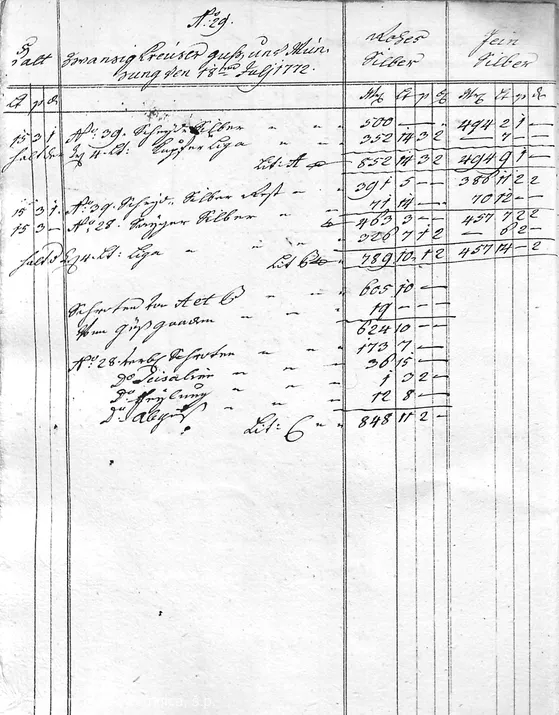 No 29.
Halt Zwanzig Kreuzer guß, und Mün- Rohes Fein
zung den 18ten July 1772. Silber Silber
Lt p d Mg Lt p d Mg Lt p d
15 3 1 No 39. Scheyd Silber 500 — — — 494 2 1 —
halt den Mg 4. Lt: Kupfer Liga 352 14 3 2 — 7 — —
Lit: A 852 14 3 2 494 9 1 —
15 3 1 No 39. Scheyd. Silber Rest 391 5 — — 386 11 2 2
15 3 — No 28. Silber 71 14 — — 70 12 — —
463 3 — — 457 7 2 2
halt d Mg 4. Lt: Liga 326 7 1 2 — 6 2 —
Lit B 789 10 1 2 457 14 — 2
Schroten von A et B 605 10 — —
Vom 19 — — —
624 10 — —
No 28 Schroten 173 7 — —
Do 36 15 — —
Do 1 3 2 —
Do 12 8 — —
Lit: C 848 11 2 —